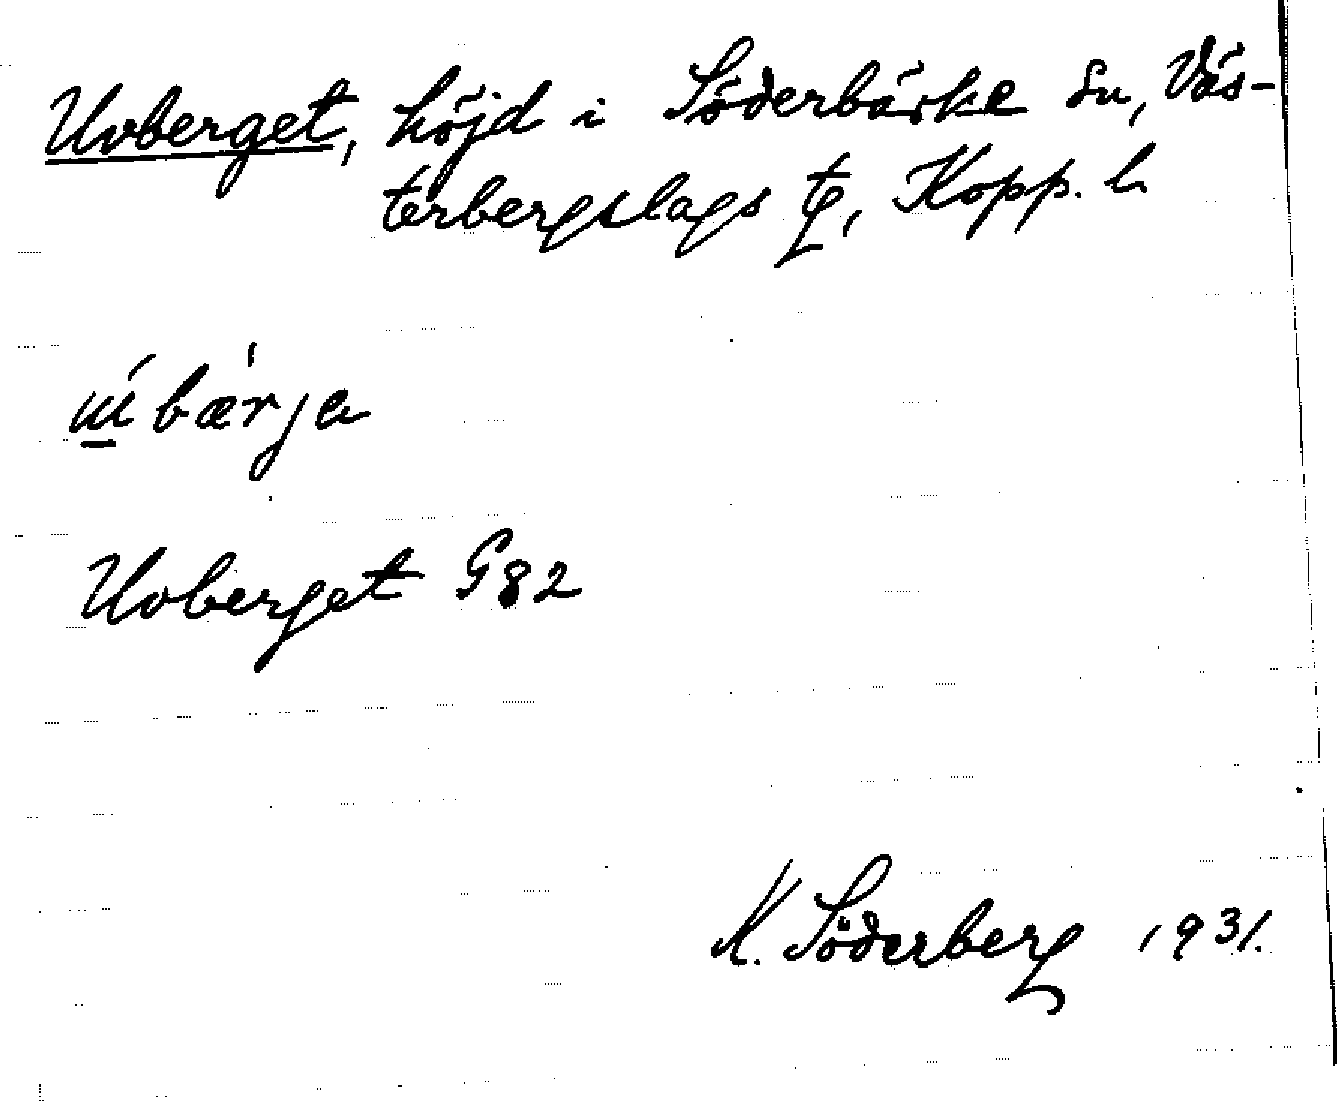 Uvberget, höjd i Söderbärke sn, Väs-
terbergslags tg, Kopp. l.
bærja
Uvberget G82
K. Söderberg 1931.